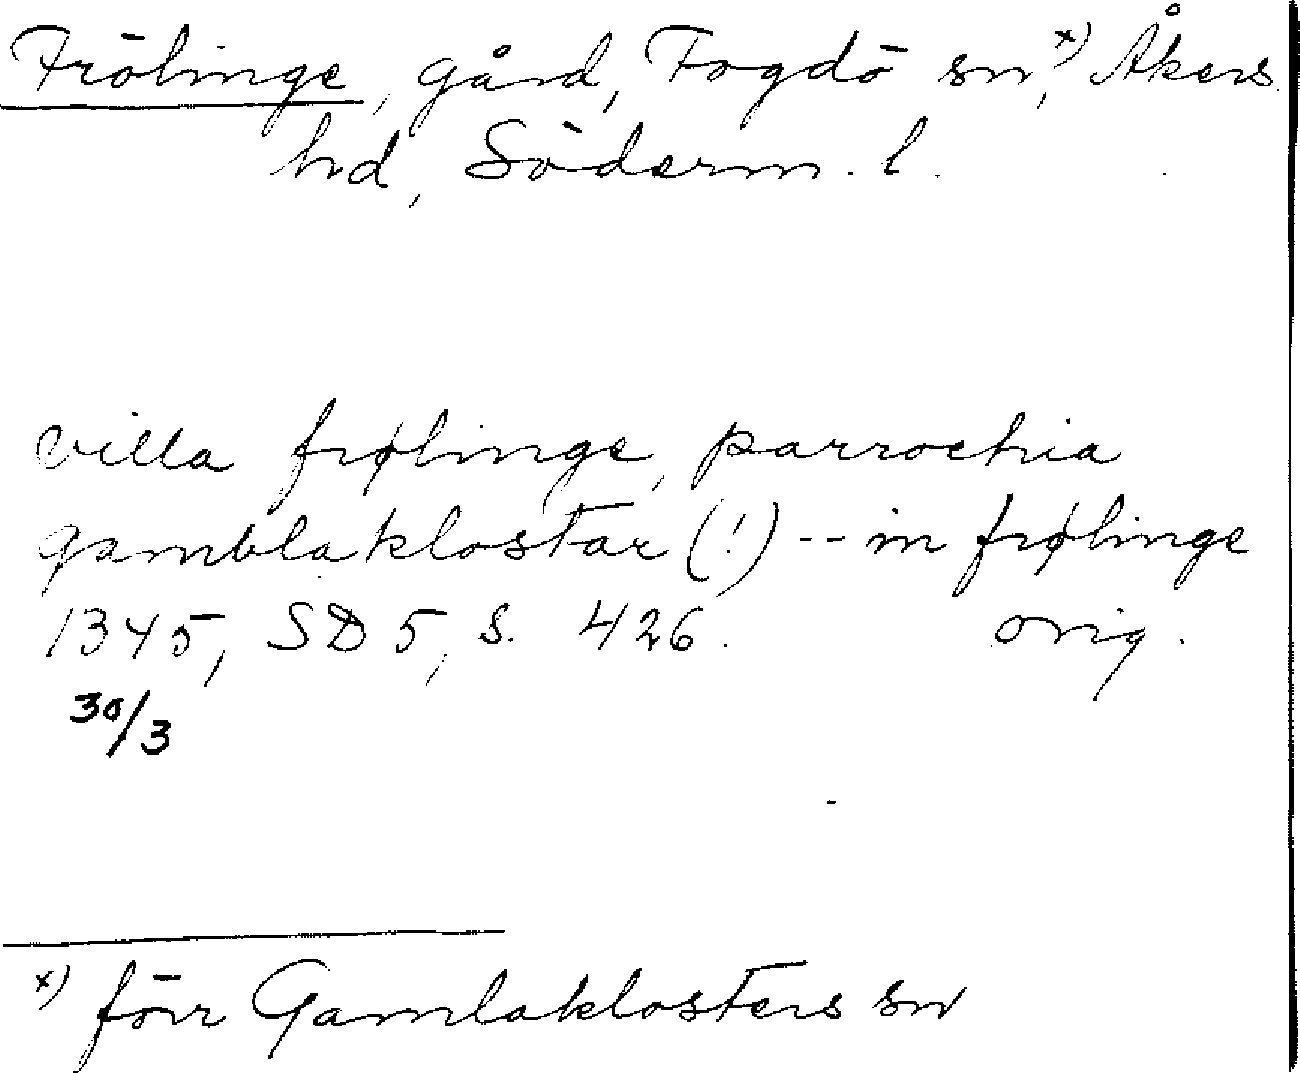 Frölinge, gård, Fogdö sn,x) Åkers
hd, Söderm. l.
villa frølinge, parrochia
gamblaklostar (!) -- in frølinge
1345, SD 5, s. 426. orig.
30/3
x) förr Gamlaklosters sn